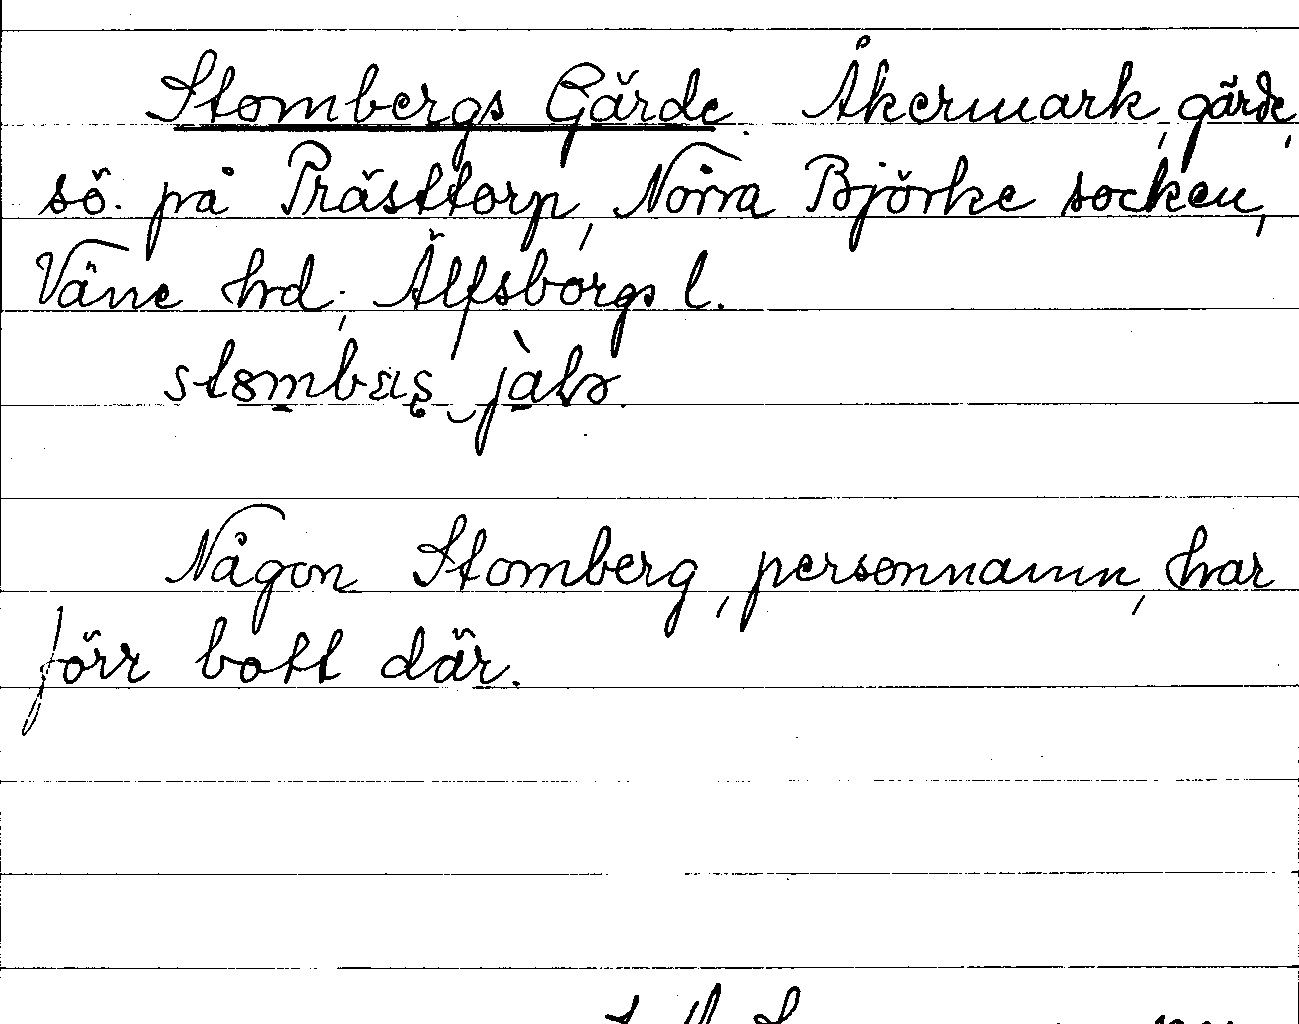 Stombergs Gärde. Åkermark, gärde,
sö. på Prästtorp, Norra Björke socken,
Väne hd, Älfsborgs l.
Någon Stomberg, personnamn, har
förr bott där.